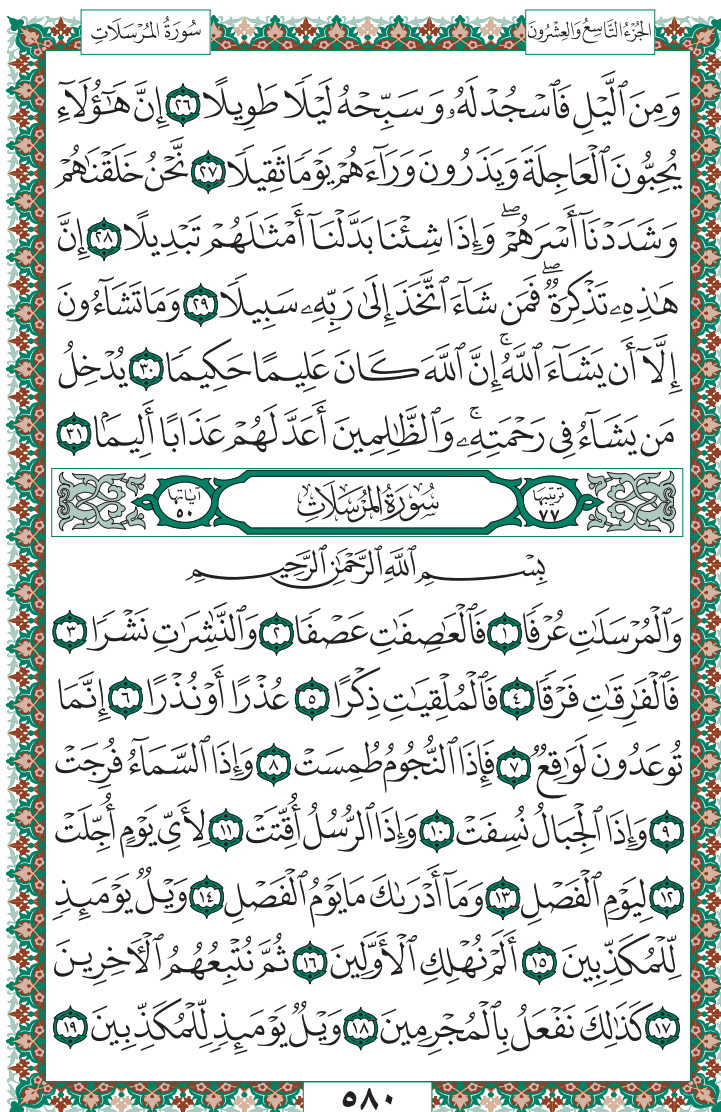 سُورَةُ المُرْسَلَاتِ
الجُزْءُ التَّاسِعُ وَالعِشْرُونَ
وَمِنَ ٱلَّيْلِ فَٱسْجُدْ لَهُۥ وَسَبِّحْهُ لَيْلًا طَوِيلًا ٢٦ إِنَّ هَـٰٓؤُلَآءِ
يُحِبُّونَ ٱلْعَاجِلَةَ وَيَذَرُونَ وَرَآءَهُمْ يَوْمًا ثَقِيلًا ٢٧ نَّحْنُ خَلَقْنَـٰهُمْ
وَشَدَدْنَآ أَسْرَهُمْ ۖ وَإِذَا شِئْنَا بَدَّلْنَآ أَمْثَـٰلَهُمْ تَبْدِيلًا ٢٨ إِنَّ
هَـٰذِهِۦ تَذْكِرَةٌ ۖ فَمَن شَآءَ ٱتَّخَذَ إِلَىٰ رَبِّهِۦ سَبِيلًا ٢٩ وَمَا تَشَآءُونَ
إِلَّآ أَن يَشَآءَ ٱللَّهُ ۚ إِنَّ ٱللَّهَ كَانَ عَلِيمًا حَكِيمًا ٣٠ يُدْخِلُ
مَن يَشَآءُ فِى رَحْمَتِهِۦ ۚ وَٱلظَّـٰلِمِينَ أَعَدَّ لَهُمْ عَذَابًا أَلِيمًۢا ٣١
ترتيبها ٧٧ سُورَةُ المُرْسَلَاتِ آياتها ٥٠
بِسْمِ ٱللَّهِ ٱلرَّحْمَـٰنِ ٱلرَّحِيمِ
وَٱلْمُرْسَلَـٰتِ عُرْفًا ١ فَٱلْعَـٰصِفَـٰتِ عَصْفًا ٢ وَٱلنَّـٰشِرَٰتِ نَشْرًا ٣
فَٱلْفَـٰرِقَـٰتِ فَرْقًا ٤ فَٱلْمُلْقِيَـٰتِ ذِكْرًا ٥ عُذْرًا أَوْ نُذْرًا ٦ إِنَّمَا
تُوعَدُونَ لَوَٰقِعٌ ٧ فَإِذَا ٱلنُّجُومُ طُمِسَتْ ٨ وَإِذَا ٱلسَّمَآءُ فُرِجَتْ
٩ وَإِذَا ٱلْجِبَالُ نُسِفَتْ ١٠ وَإِذَا ٱلرُّسُلُ أُقِّتَتْ ١١ لِأَىِّ يَوْمٍ أُجِّلَتْ
١٢ لِيَوْمِ ٱلْفَصْلِ ١٣ وَمَآ أَدْرَىٰكَ مَا يَوْمُ ٱلْفَصْلِ ١٤ وَيْلٌ يَوْمَئِذٍ
لِّلْمُكَذِّبِينَ ١٥ أَلَمْ نُهْلِكِ ٱلْأَوَّلِينَ ١٦ ثُمَّ نُتْبِعُهُمُ ٱلْـَٔاخِرِينَ
١٧ كَذَٰلِكَ نَفْعَلُ بِٱلْمُجْرِمِينَ ١٨ وَيْلٌ يَوْمَئِذٍ لِّلْمُكَذِّبِينَ ١٩
٥٨٠